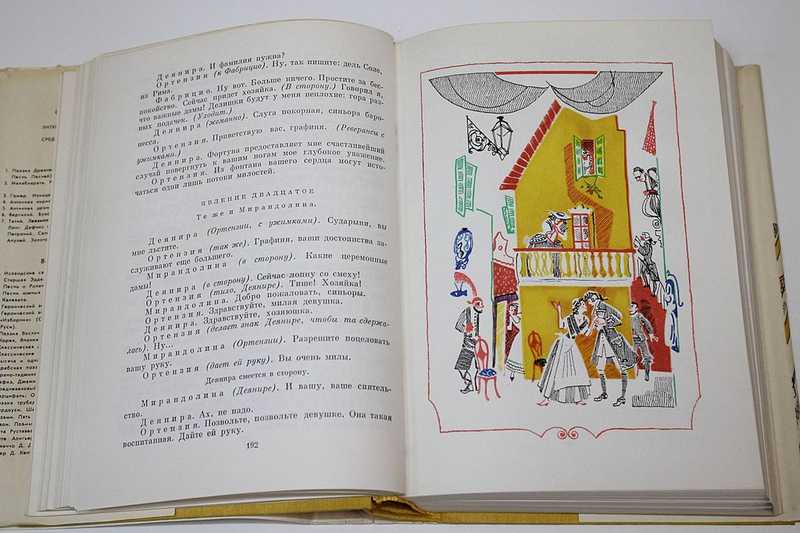 Деянира. И фамилия нужна?
Ортензия (к Фабрицио). Ну, так пишите: дель Соле,
из Рима.
Фабрицио. Ну вот. Больше ничего. Простите за бес-
покойство. Сейчас придет хозяйка. (В сторону.) Говорил я,
что важные дамы! Делишки будут у меня неплохие: гора раз-
ных подачек. (Уходит.)
Деянира (жеманно). Слуга покорная, синьора баро-
несса.
Ортензия. Приветствую вас, графиня. (Реверансы с
ужимками.)
Деянира. Фортуна предоставляет мне счастливейший
случай повергнуть к вашим ногам мое глубокое уважение.
Ортензия. Из фонтана вашего сердца могут исто-
чаться одни лишь потоки милостей.
ЯВЛЕНИЕ ДВАДЦАТОЕ
Те же и Мирандолина.
Деянира (Ортензии, с ужимками). Сударыня, вы
мне льстите.
Ортензия (так же). Графиня, ваши достоинства за-
служивают еще большего.
Мирандолина (в сторону). Какие церемонные
дамы!
Деянира (в сторону). Сейчас лопну со смеху!
Ортензия (тихо, Деянире). Тише! Хозяйка!
Мирандолина. Добро пожаловать, синьоры.
Ортензия. Здравствуйте, милая девушка.
Деянира. Здравствуйте, хозяюшка.
Ортензия (делает знак Деянире, чтобы та сдержа-
лась). Ну...
Мирандолина (Ортензии). Разрешите поцеловать
вашу руку.
Ортензия (дает ей руку). Вы очень милы.
Деянира смеется в сторону.
Мирандолина (Деянире). И вашу, ваше сиятель-
ство.
Деянира. Ах, не надо.
Ортензия. Позвольте, позвольте девушке. Она такая
воспитанная. Дайте ей руку.
192